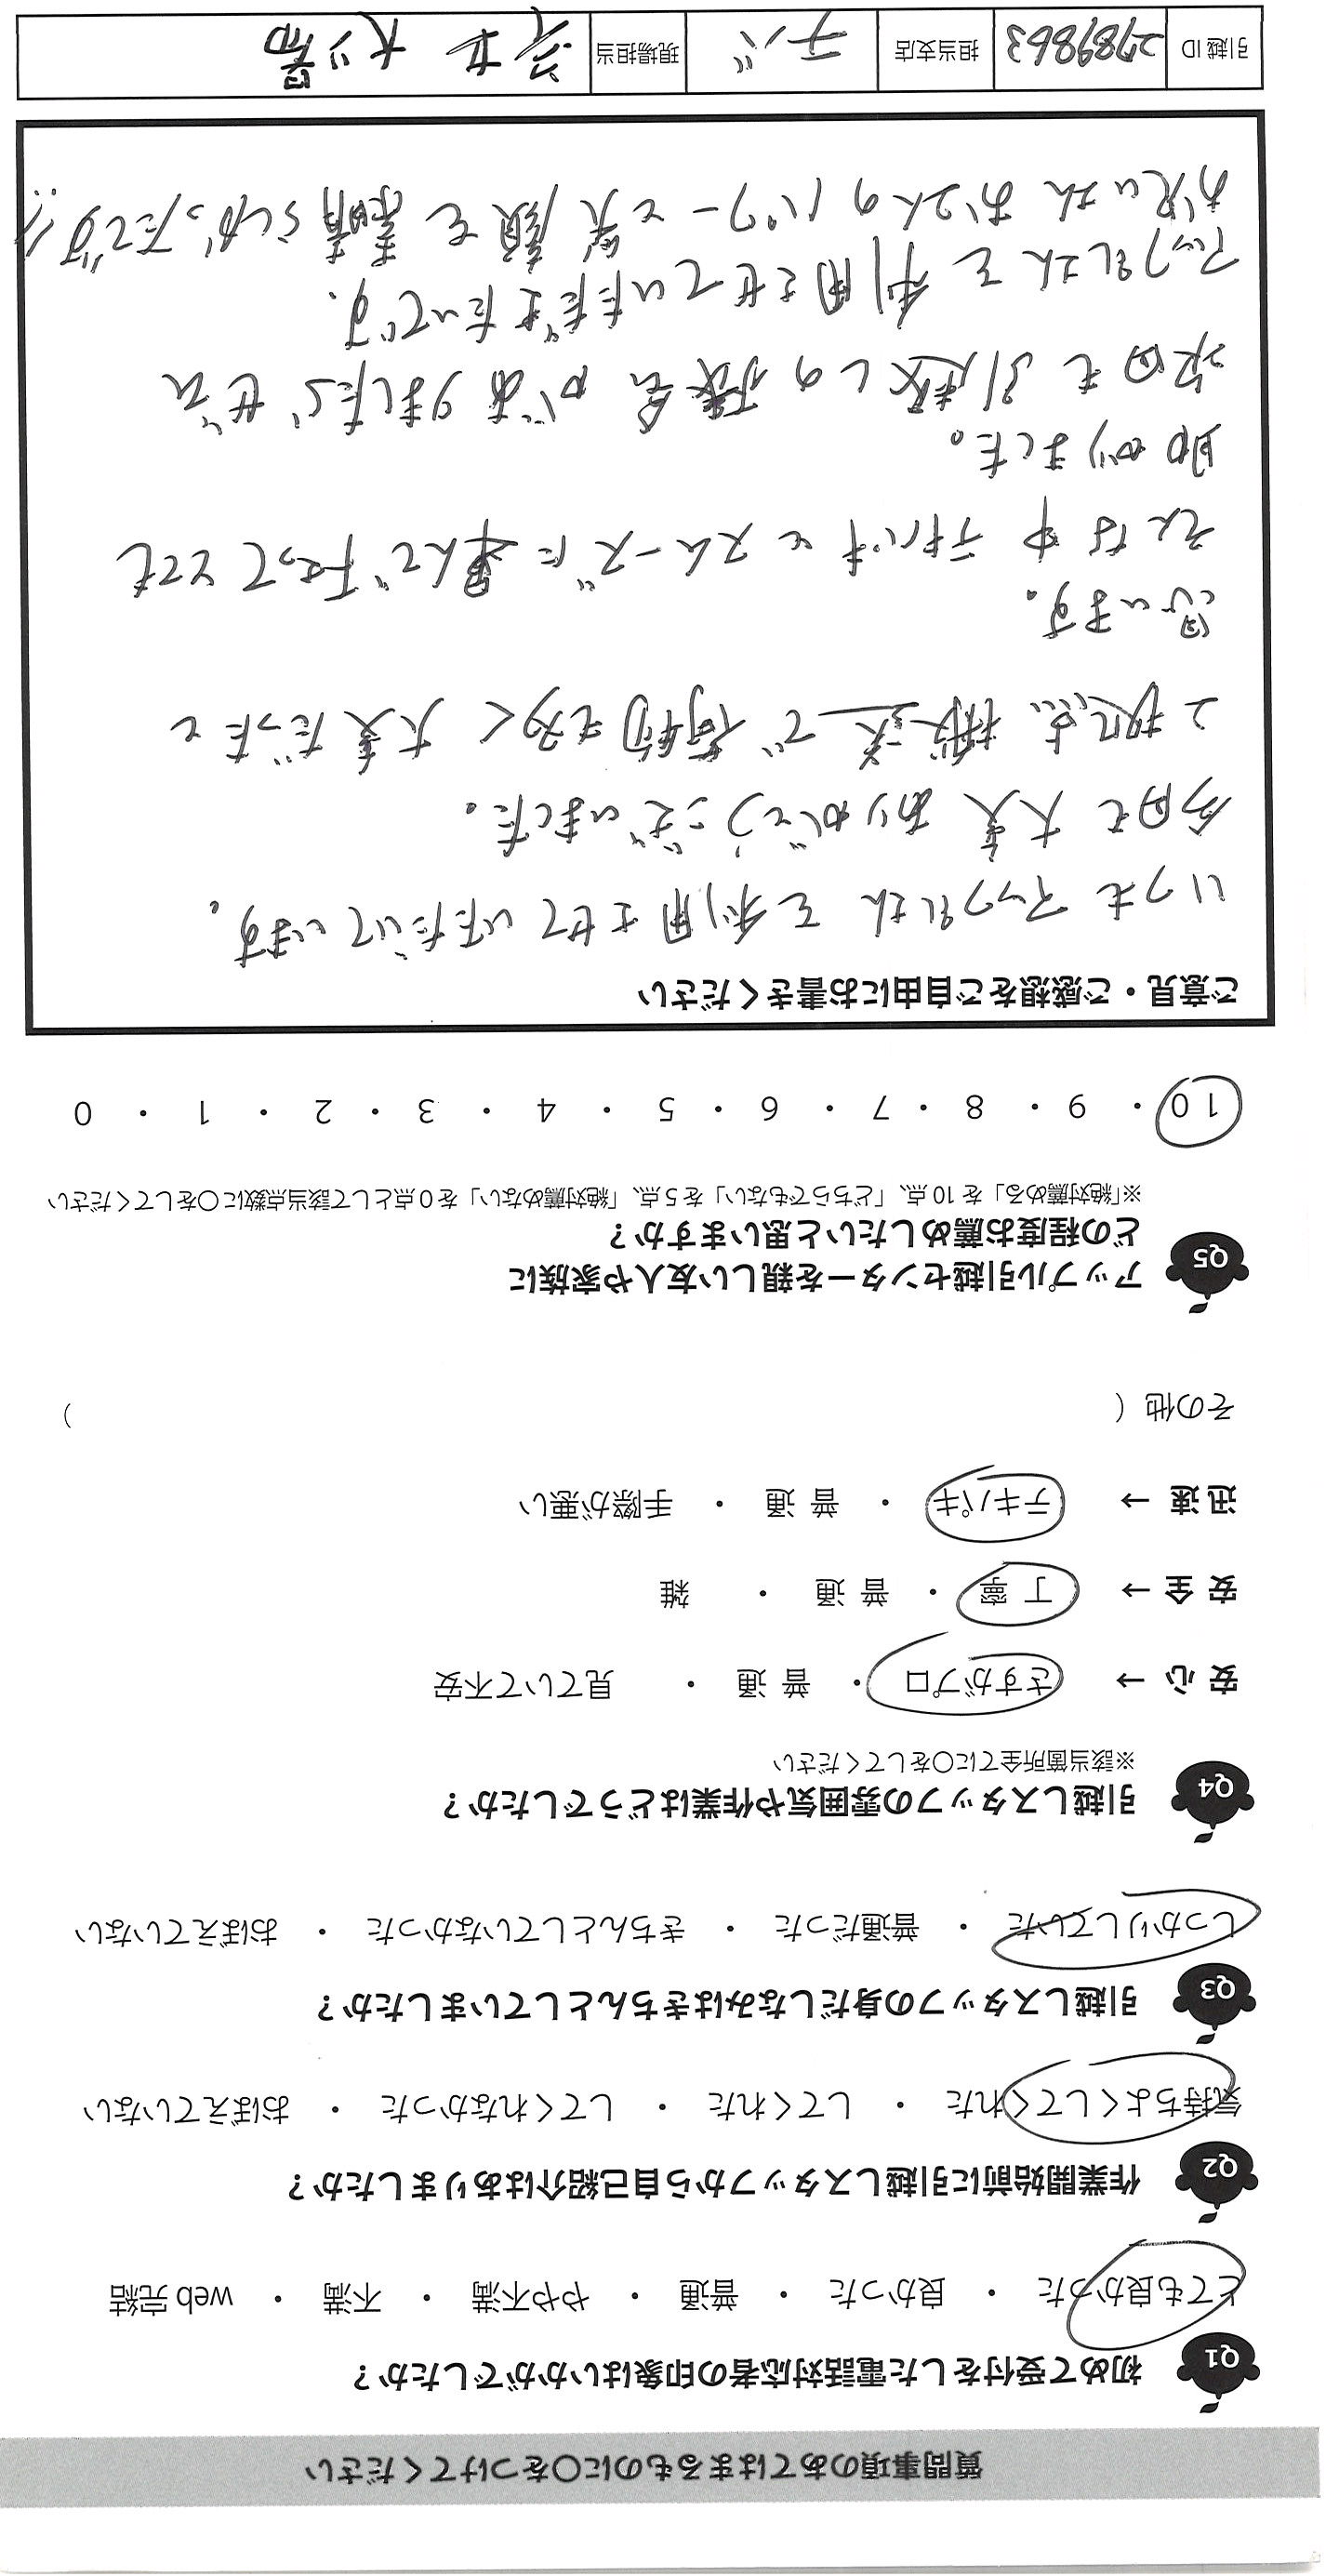 質問事項のあてはまるものに○をつけてください
Q1 初めて受付をした電話対応者の印象はいかがでしたか？
とても良かった ・ 良かった ・ 普通 ・ やや不満 ・ 不満 ・ web 完結
Q2 作業開始前に引越しスタッフから自己紹介はありましたか？
気持ちよくしてくれた ・ してくれた ・ してくれなかった ・ おぼえていない
Q3 引越しスタッフの身だしなみはきちんとしていましたか？
しっかりしていた ・ 普通だった ・ きちんとしていなかった ・ おぼえていない
Q4 引越しスタッフの雰囲気や作業はどうでしたか？
※該当箇所全てに○をしてください
安 心 → さすがプロ ・ 普 通 ・ 見ていて不安
安 全 → 丁 寧 ・ 普 通 ・ 雑
迅 速 → テキパキ ・ 普 通 ・ 手際が悪い
その他（ ）
Q5 アップル引越センターを親しい友人や家族に
どの程度お薦めしたいと思いますか？
※「絶対薦める」を 10 点、「どちらでもない」を 5 点、「絶対薦めない」を 0 点として該当点数に○をしてください
10 ・ 9 ・ 8 ・ 7 ・ 6 ・ 5 ・ 4 ・ 3 ・ 2 ・ 1 ・ 0
ご意見・ご感想をご自由にお書きください
いつもアップルさんを利用させていただいています。
今回も大変ありがとうございました。
2拠点搬送で荷物も多く大変だったと
思います。
そんな中テキパキとスムーズに運んで下さってとても
助かりました。
次回も引越しの機会がありましたらぜひ
アップルさんを利用させていただきたいです。
お兄さんお2人のパワーと笑顔も素晴らしかったです!!
引越 ID 2789863 担当支店 チバ 現場担当